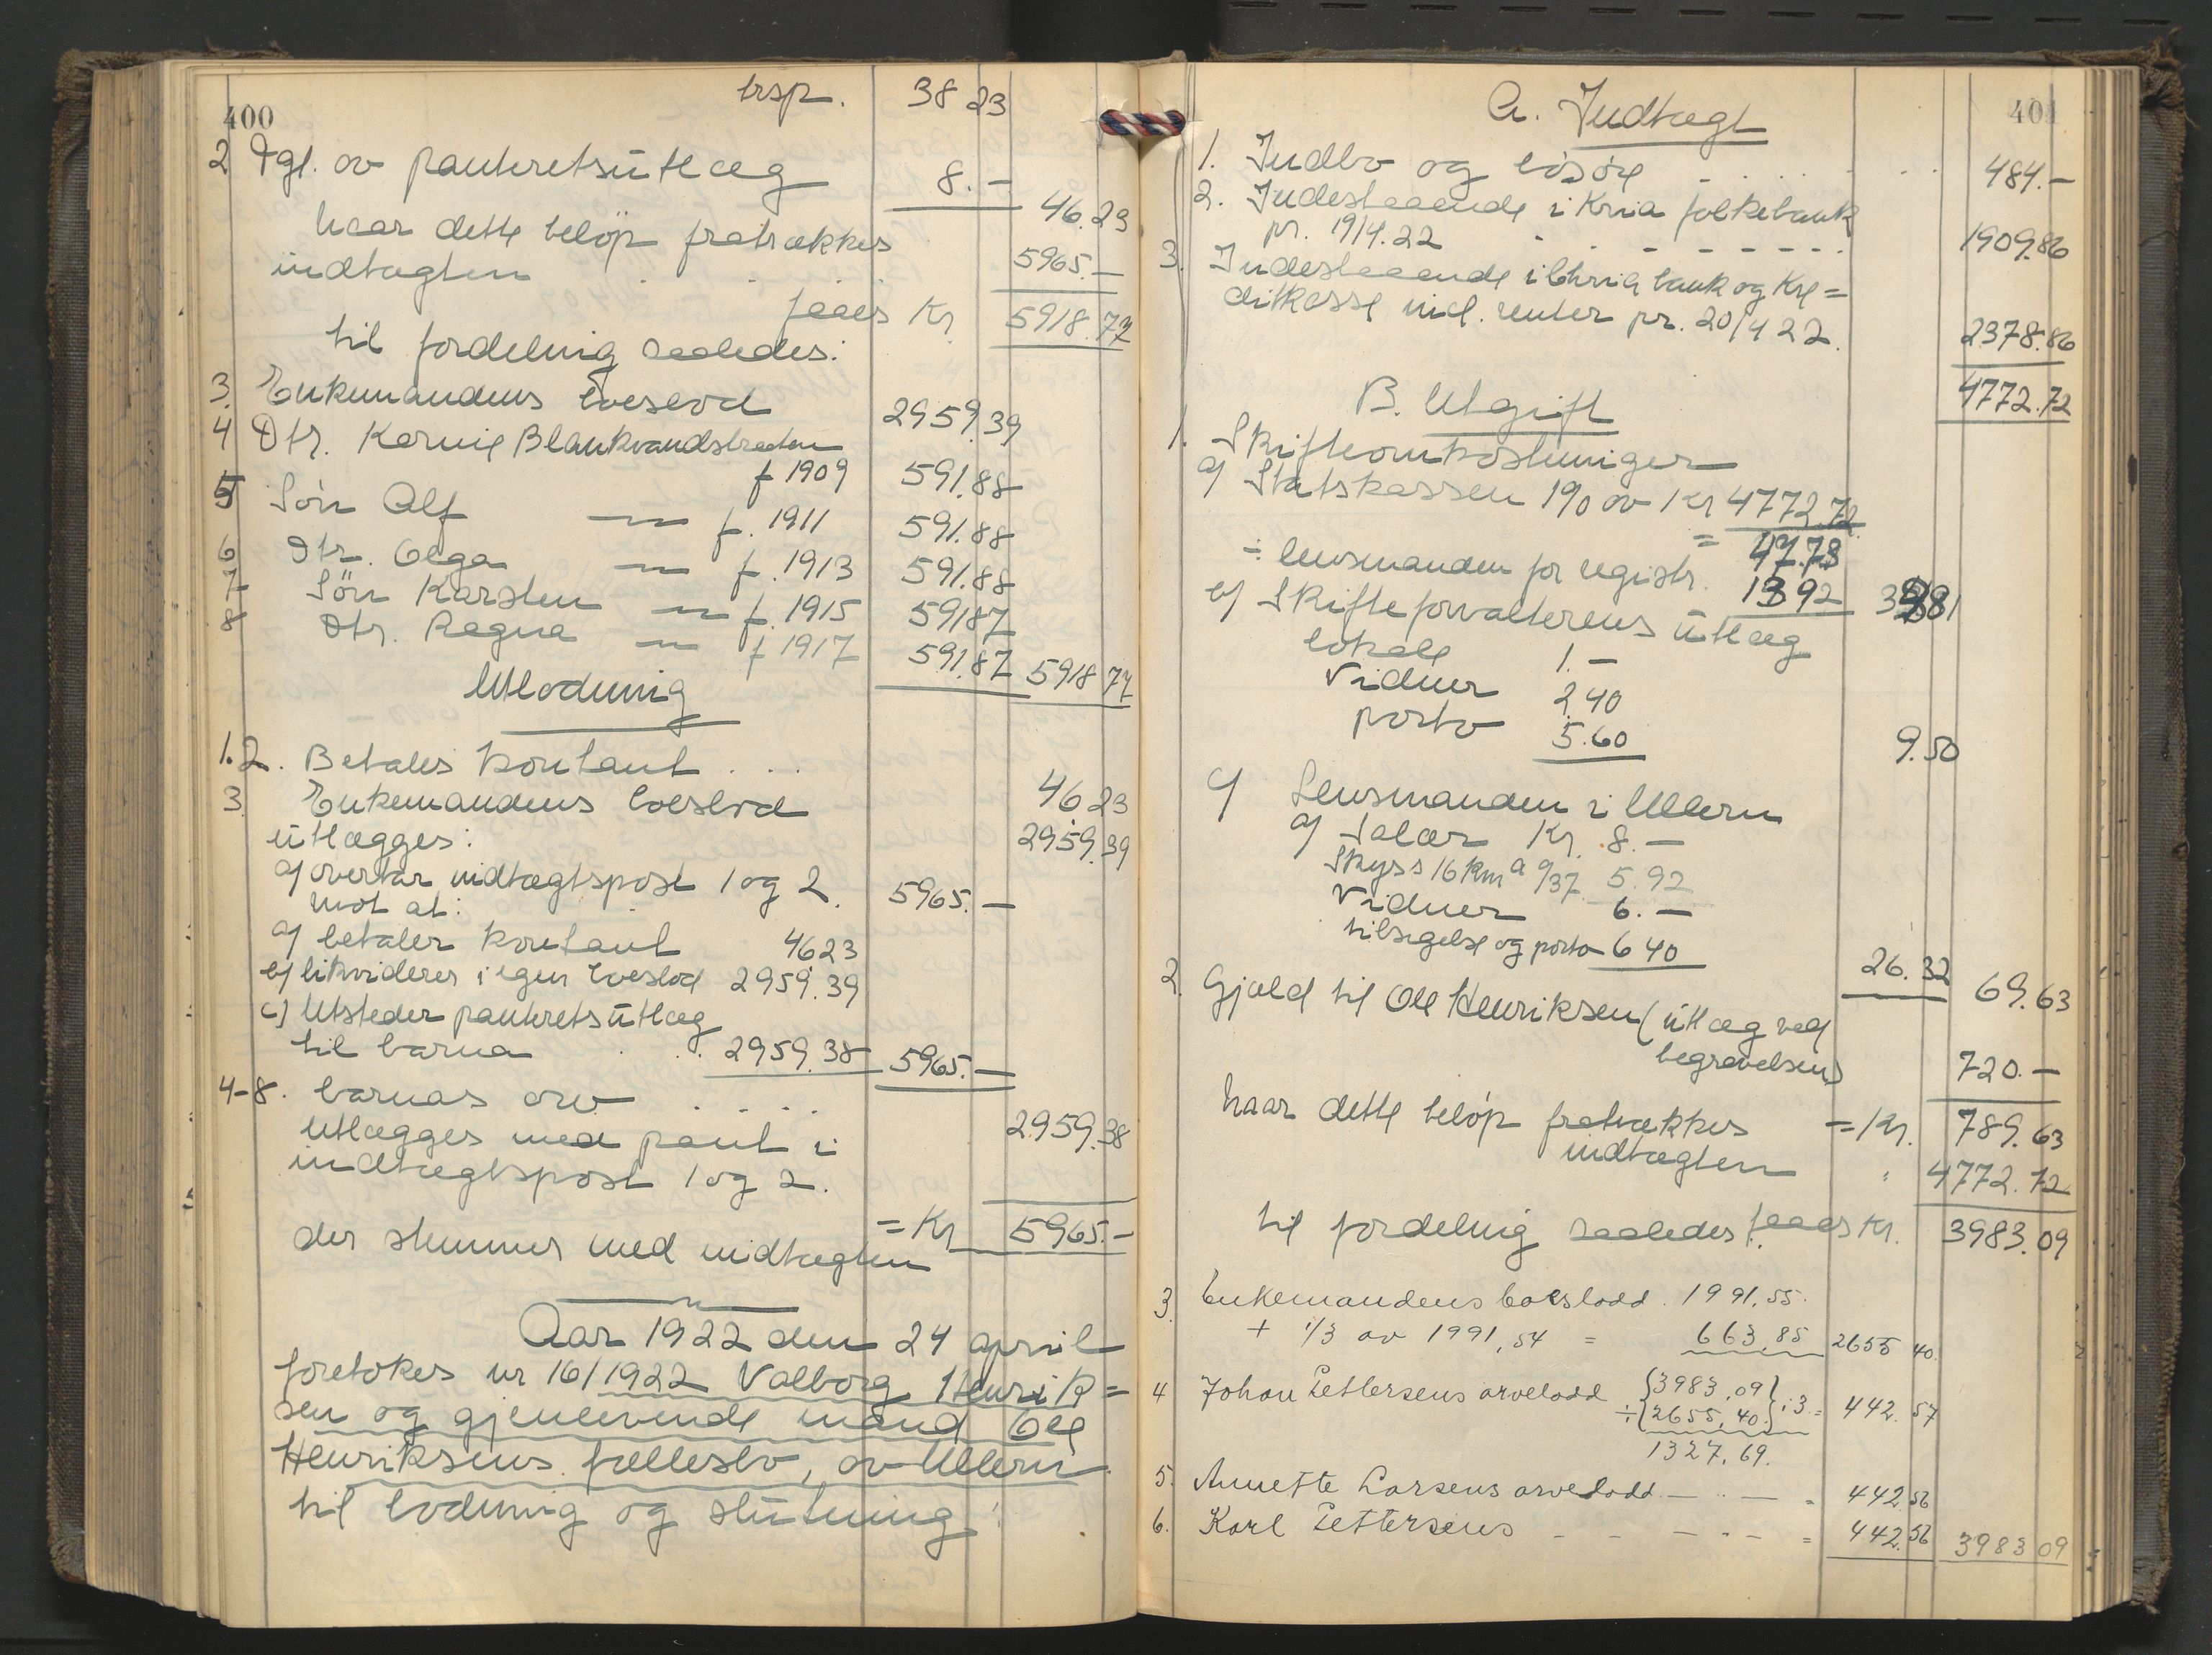 400
trsp. 38 23
2 Tgl. ov panteretsutlæg 8.—
46.23
naar dette beløp fratrækkes
indtægten 5965.—
faaes Kr 5918.77
til fordeling saaledes:
3. Enkemandens boeslod 2959.39
4 Dtr. Karnie Blankvandsbraaten
f 1909 591.88
5 Søn Alf — f. 1911 591.88
6 Dtr. Olga — f. 1913 591.88
7 Søn Karsten — f. 1915 591 87
8 Dtr. Ragna — f 1917 591.87 5918 77
Utlodning
1.2. Betales kontant . . . 46 23
3. Enkemandens boeslod 2959.39
utlægges:
a) overtar indtægtspost 1 og 2. 5965.—
mot at:
a) betaler kontant 4623
b) likviderer i egen boeslod 2959.39
c) Utsteder panteretsutlæg
til barna . . . 2959.38 5965.—
4-8. barnas arv . . . . 2959.38
utlægges med pant i
indtægtspost 1 og 2.
= Kr 5965.—
der stemmer med indtægten
Aar 1922 den 24 april
foretokes nr 16/1922 Valborg Henrik=
sen og gjenlevende mand Ole
Henriksens fællesbo, ov Ullern
til lodning og slutning:
401
A. Indtægt
1. Indbo og løsøre . . . . . . 484.—
2. Indestaaende i Kria folkebank
pr. 19/4.22 - - - - - - - 1909.86
3. Indestaaende i Chria bank og Kre=
ditkasse incl. renter pr. 20/4 22. 2378.86
4772.72
B. Utgift
1. Skifteomkostninger
a) Statskassen 1% ov Kr 4772.72
= 47.73
÷ lensmanden for registr. 1392 3381
b) Skifteforvalterens utlæg
lokale 1.—
Vidner 2.40
porto 5.60 9.50
c) Lensmanden i Ullern
a) Salær Kr. 8.—
Skyss 16 km a 0/37 5.92
Vidner 6.—
tilsigelse og porto 6 40 26.32 69.63
2. Gjæld til Ole Henriksen (utlæg ved
begravelsen) 720.—
= Kr. 789.63
naar dette beløp fratrækkes
indtægten " 4772.72
til fordeling saaledes faaes Kr. 3983.09
3. Enkemandens boeslodd. 1991.55.
+ 1/3 av 1991,54 = 663,85 2655 40.
4 Johan Pettersens arvelodd {3983,09} ÷{2655,40.} :3 = 442.57
1327,69.
5. Annette Larsens arvelodd — " — = 442.56
6. Karl Pettersens - - — " — = 442.56 3983 09